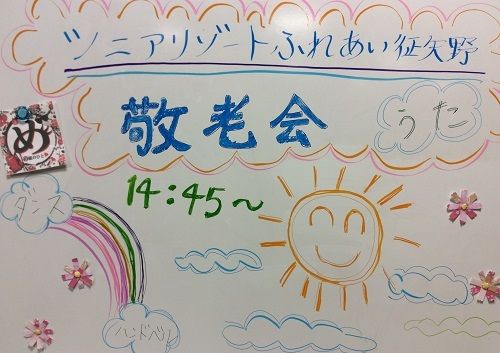 シニアリゾートふれあい征矢野
敬老会
うた
14:45〜
め
ダンス
ハンドベル